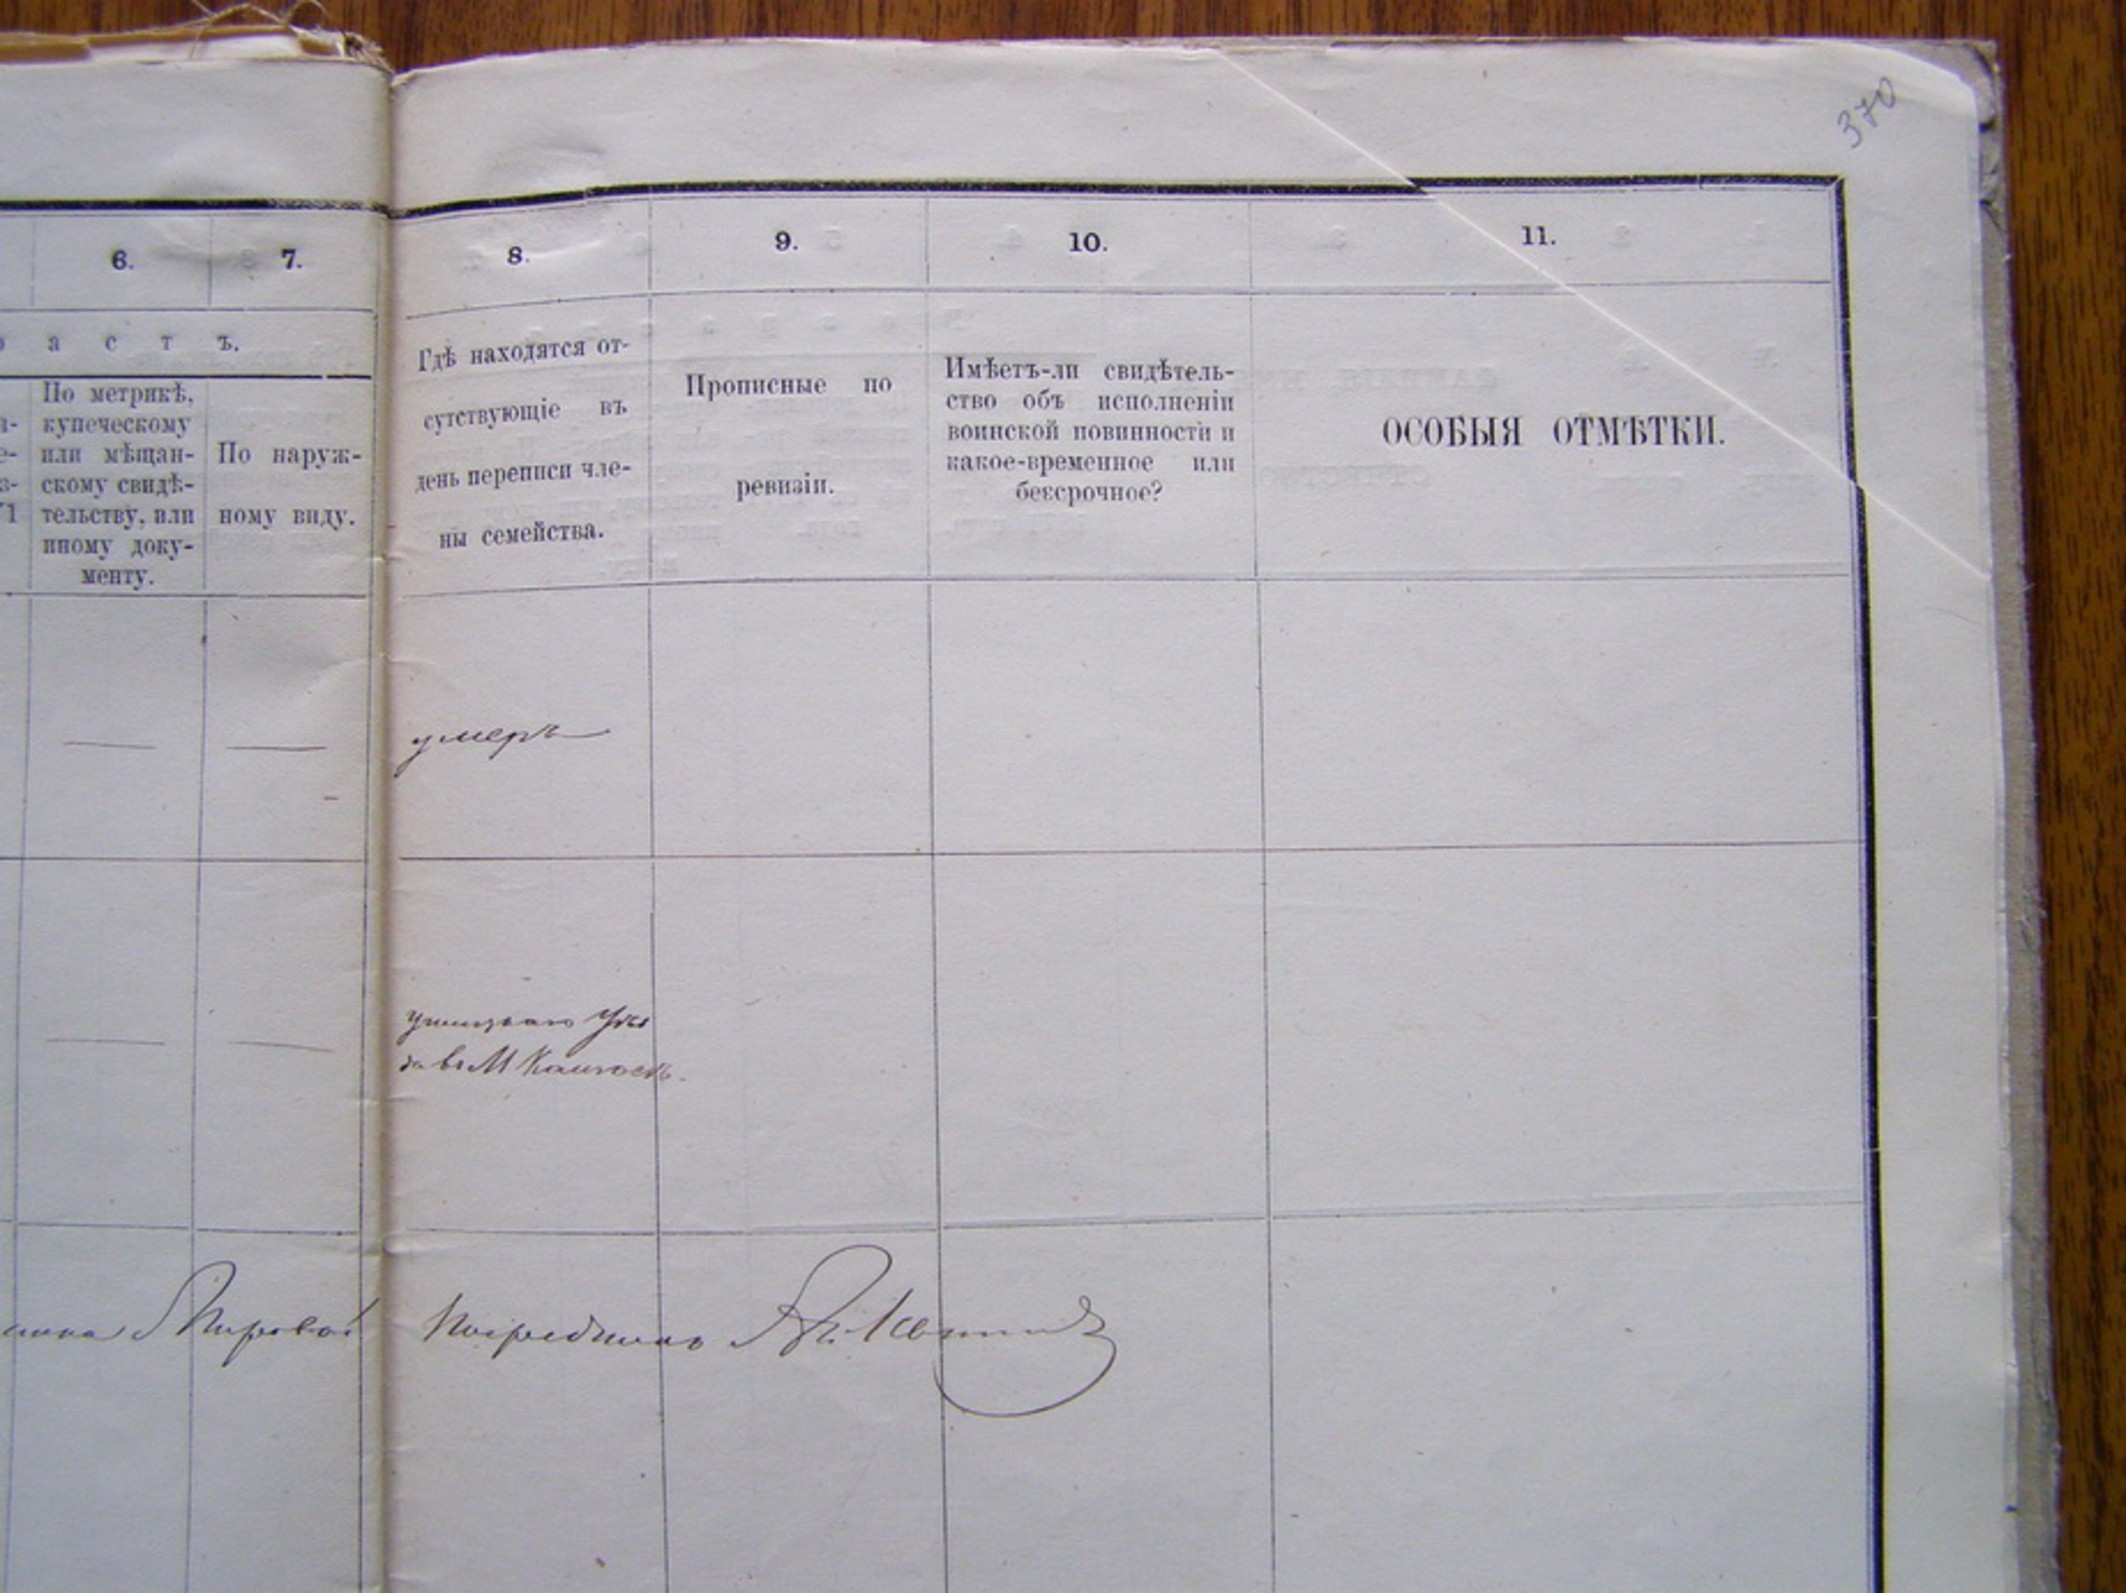 370
6.
7.
8.
9.
10.
11.
а с т ъ.
По метрикѣ,
купеческому
или мѣщан-
скому свидѣ-
тельству, или
иному доку-
менту.
По наруж-
ному виду.
Гдѣ находятся от-
сутствующіе въ
день переписи чле-
ны семейства.
Прописные по
ревизіи.
Имѣетъ-ли свидѣтель-
ство объ исполненіи
воинской повинности и
какое-временное или
бессрочное?
ОСОБЫЯ ОТМѢТКИ.
умеръ
Ушицкаго Уѣз
да въ М
Мировой Посредникъ